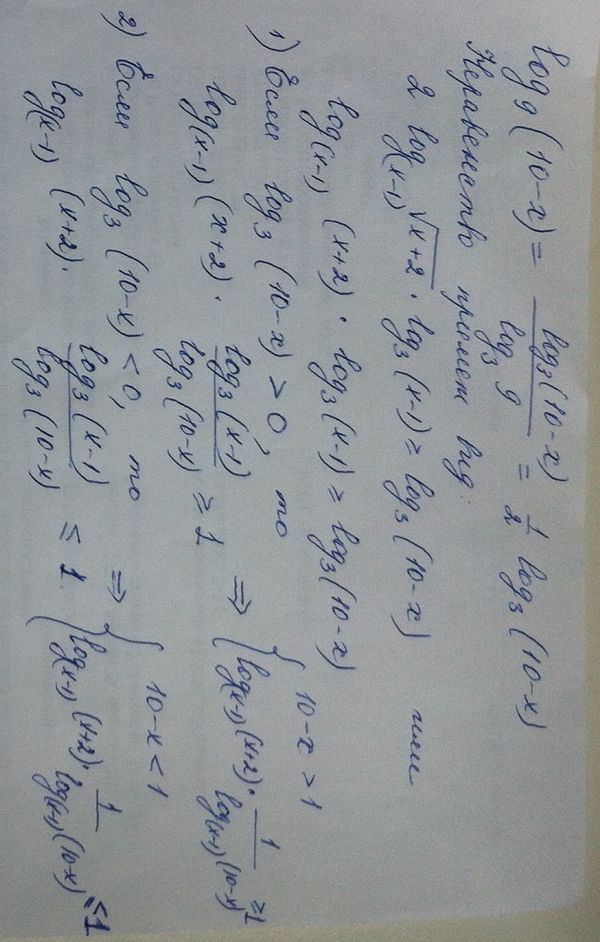 log₉(10-x) = log₃(10-x) / log₃9 = 1/2 log₃(10-x)
Неравенство примет вид:
2 log₍ₓ₋₁₎ √(x+2) · log₃(x-1) ≥ log₃(10-x) или
log₍ₓ₋₁₎ (x+2) · log₃(x-1) ≥ log₃(10-x)
1) Если log₃(10-x) > 0, то
log₍ₓ₋₁₎ (x+2) · log₃(x-1) / log₃(10-x) ≥ 1 ⇒ { 10-x > 1
log₍ₓ₋₁₎ (x+2) · 1 / log₍ₓ₋₁₎(10-x) ≥ 1
2) Если log₃(10-x) < 0, то
log₍ₓ₋₁₎ (x+2) · log₃(x-1) / log₃(10-x) ≤ 1 ⇒ { 10-x < 1
log₍ₓ₋₁₎ (x+2) · 1 / log₍ₓ₋₁₎(10-x) ≤ 1